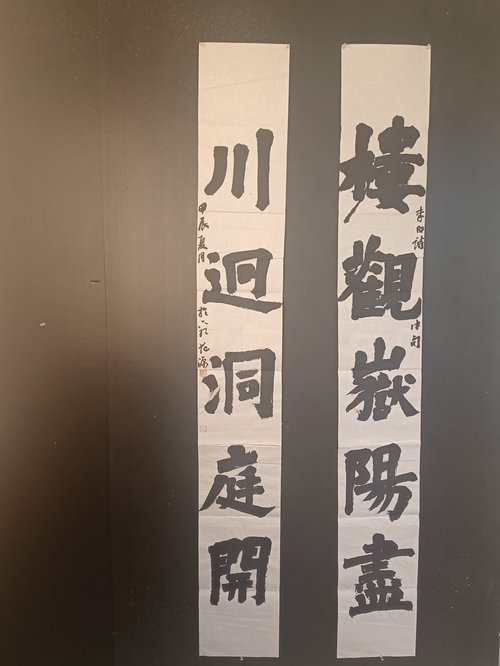 樓觀嶽陽盡
李白詩
中句
川迥洞庭開
甲辰夏月